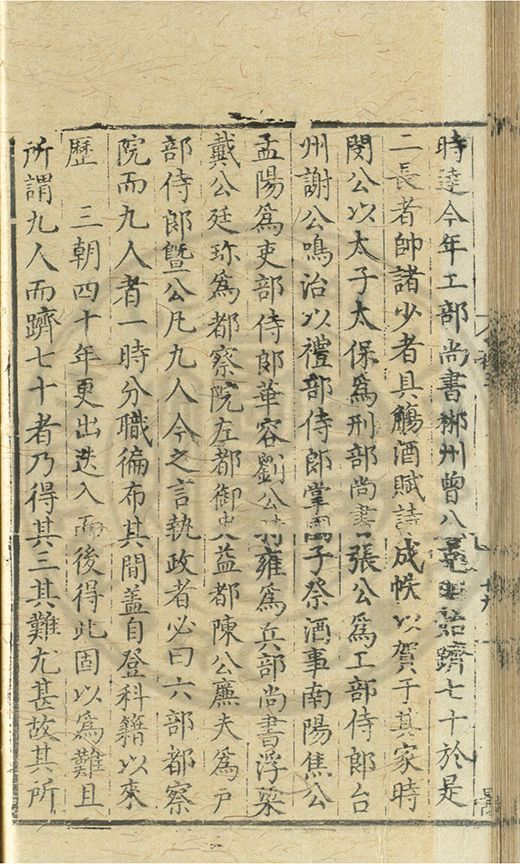 時達今年工部尚書郴州曾公克明始躋七十於是
二長者帥諸少者具觴酒賦詩成帙以賀于其家時
閔公以太子太保爲刑部尚書張公爲工部侍郎台
州謝公鳴治以禮部侍郎掌國子祭酒事南陽焦公
孟陽爲吏部侍郎華容劉公時雍爲兵部尚書浮梁
戴公廷珍爲都察院左都御史益都陳公廉夫爲戸
部侍郎曁公凡九人今之言執政者必曰六部都察
院而九人者一時分職徧布其間蓋自登科籍以來
歷　三朝四十年更出迭入而後得此固以爲難且
所謂九人而躋七十者乃得其三其難尤甚故其所